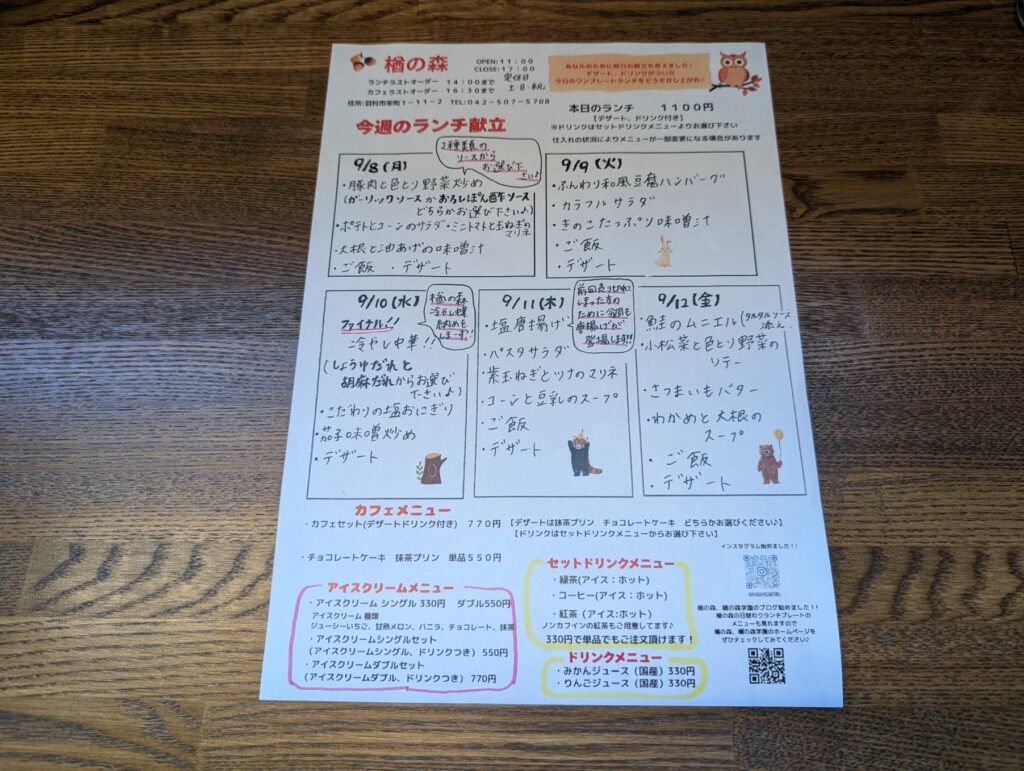 楢の森
OPEN:11:00
CLOSE:17:00
定休日
土・日・祝
ランチラストオーダー 14:00まで
カフェラストオーダー 16:30まで
住所:羽村市栄町1-11-2 TEL:042-507-5708
あなたのために毎日の献立を考えました!
デザート、ドリンクがついた
今日のワンプレートランチをどうぞ召し上がれ♪
本日のランチ 1100円
【デザート、ドリンク付き】
※ドリンクはセットドリンクメニューよりお選び下さい
仕入れの状況によりメニューが一部変更になる場合があります
今週のランチ献立
9/8(月)
2種類の
ソースから
お選び下
さい♪
・豚肉と色とり野菜炒め
(ガーリックソースかおろしぽん酢ソース
どちらかお選び下さいよ)
・ポテトとコーンのサラダ・ミニトマトと玉ねぎの
マリネ
・大根と油あげの味噌汁
・ご飯 ・デザート
9/9(火)
・ふんわり和風豆腐ハンバーグ
・カラフルサラダ
・きのこたっぷり味噌汁
・ご飯
・デザート
9/10(水)
楢の森
冷やし中華
納めを
しまーす!!
ファイナル!!
冷やし中華!!
(しょうゆだれと
胡麻だれからお選び
下さいよ)
・こだわりの塩おにぎり
・茄子味噌炒め
・デザート
9/11(木)
前回売り切れて
しまった方の
ために今週も
唐揚げが
登場します!!
・塩唐揚げ
・パスタサラダ
・紫玉ねぎとツナのマリネ
・コーンと豆乳のスープ
・ご飯
・デザート
9/12(金)
・鮭のムニエル(タルタルソース
添え)
・小松菜と色とり野菜の
ソテー
・さつまいもバター
・わかめと大根の
スープ
・ご飯
・デザート
カフェメニュー
・カフェセット(デザートドリンク付き) 770円 【デザートは抹茶プリン チョコレートケーキ どちらかお選びください♪】
【ドリンクはセットドリンクメニューからお選び下さい】
・チョコレートケーキ 抹茶プリン 単品550円
アイスクリームメニュー
・アイスクリーム シングル 330円 ダブル550円
アイスクリーム 種類
ジューシーいちご、甘熟メロン、バニラ、チョコレート、抹茶
・アイスクリームシングルセット
(アイスクリームシングル、ドリンクつき) 550円
・アイスクリームダブルセット
(アイスクリームダブル、ドリンクつき) 770円
セットドリンクメニュー
・緑茶(アイス:ホット)
・コーヒー(アイス:ホット)
・紅茶 (アイス:ホット)
ノンカフインの紅茶もご用意してます♪
330円で単品でもご注文頂けます!
ドリンクメニュー
・みかんジュース(国産)330円
・りんごジュース(国産)330円
インスタグラム始めました!!
楢の森、楢の森学園のブログ始めました!!
楢の森の日替わりランチプレートの
メニューも見れますので
楢の森、楢の森学園のホームページを
ぜひチェックしてみてください♪